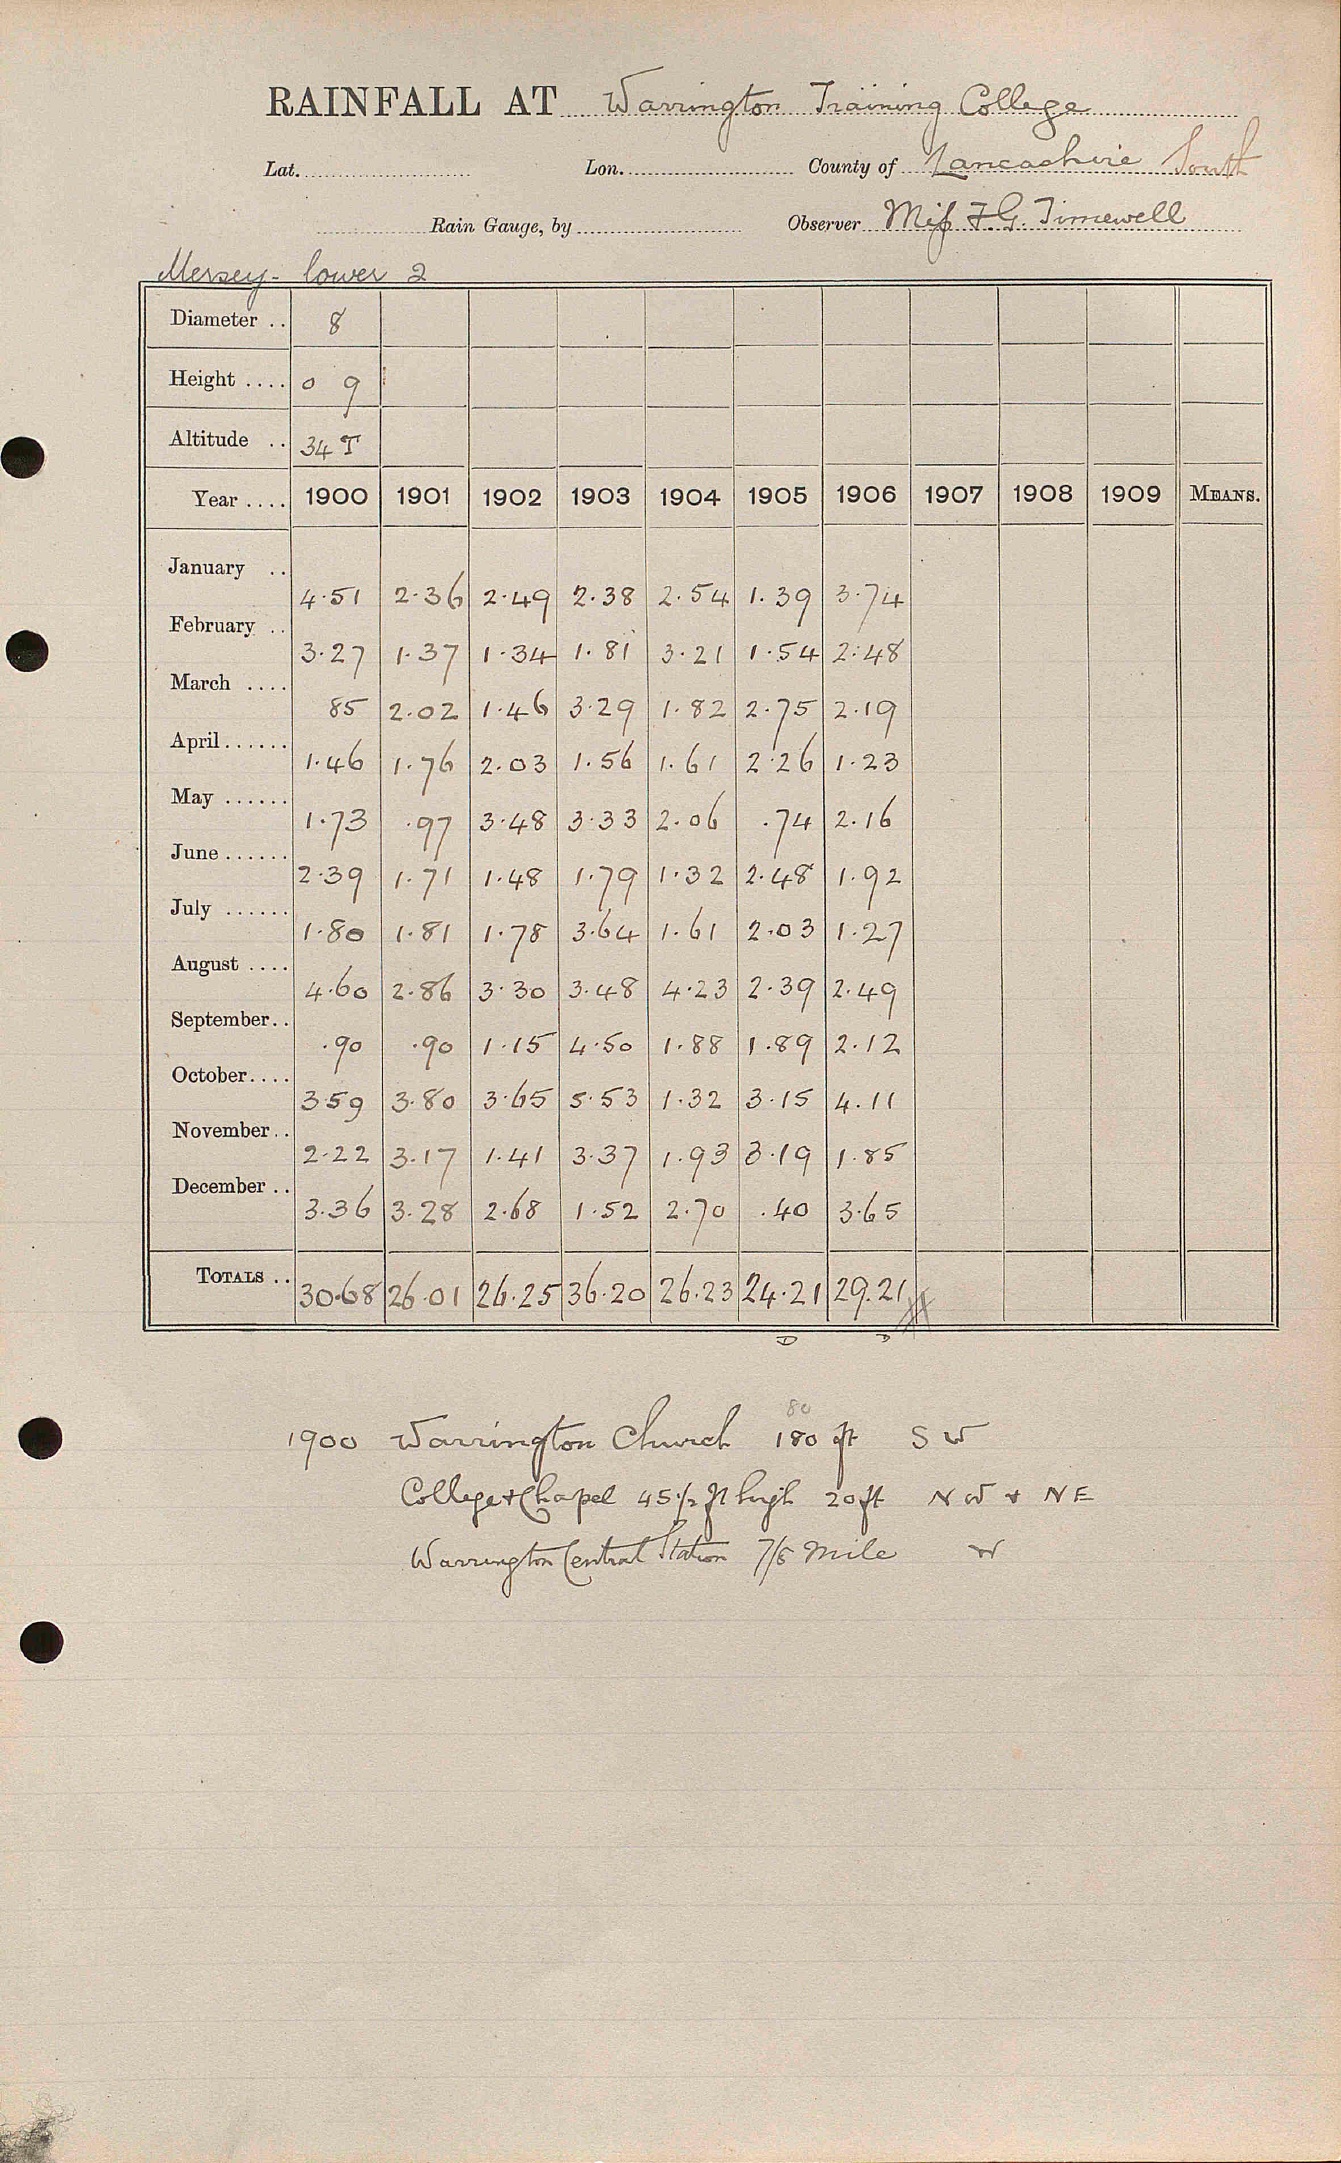 RAINFALL AT Warrington Training College
Lat. Lon. County of Lancashire South
Rain Gauge, by Observer Miss F. G. Timewell
Mersey - lower 2
Diameter .. 8
Height .... 0 9
Altitude .. 34 T
Year .... 1900 1901 1902 1903 1904 1905 1906 1907 1908 1909 MEANS.
January .. 4.51 2.36 2.49 2.38 2.54 1.39 3.74
February .. 3.27 1.37 1.34 1.81 3.21 1.54 2.48
March .... 85 2.02 1.46 3.29 1.82 2.75 2.19
April...... 1.46 1.76 2.03 1.56 1.61 2.26 1.23
May ...... 1.73 .97 3.48 3.33 2.06 .74 2.16
June...... 2.39 1.71 1.48 1.79 1.32 2.48 1.92
July ...... 1.80 1.81 1.78 3.64 1.61 2.03 1.27
August .... 4.60 2.86 3.30 3.48 4.23 2.39 2.49
September.. .90 .90 1.15 4.50 1.88 1.89 2.12
October.... 3.59 3.80 3.65 5.53 1.32 3.15 4.11
November.. 2.22 3.17 1.41 3.37 1.93 3.19 1.85
December .. 3.36 3.28 2.68 1.52 2.70 .40 3.65
TOTALS .. 30.68 26.01 26.25 36.20 26.23 24.21 29.21
D D
80
1900 Warrington Church 180 ft S W
College & Chapel 45 1/2 ft high 20 ft N W & N E
Warrington Central Station 7/8 Mile W